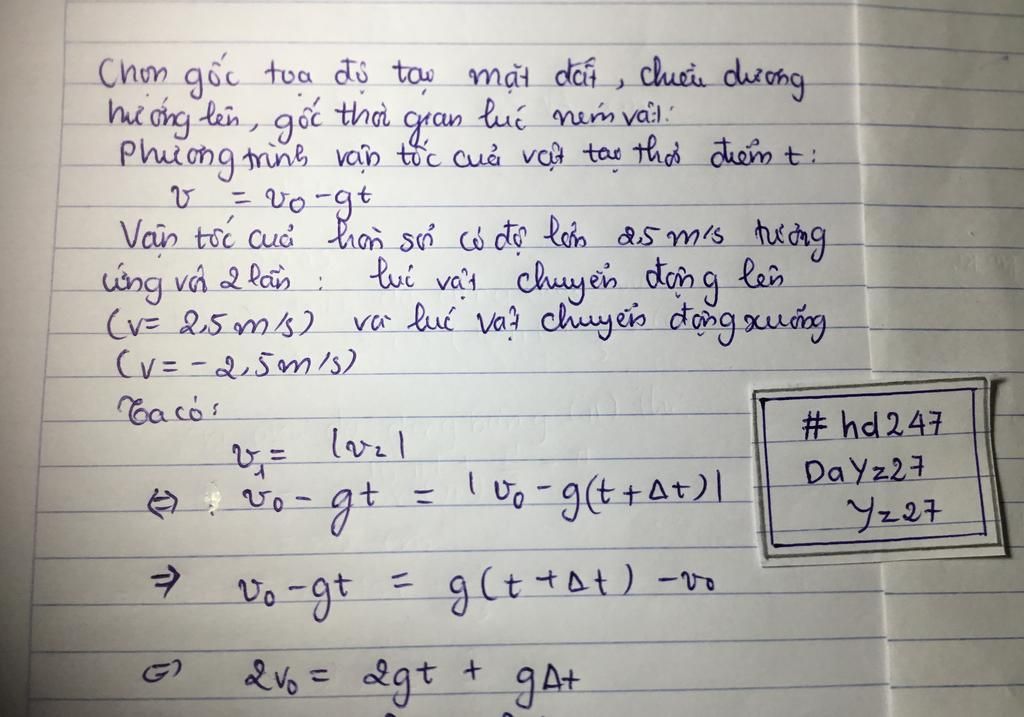 Chọn gốc tọa độ tạo mặt đất, chiều dương
hướng lên, gốc thời gian lúc ném vật.
Phương trình vận tốc của vật tạo thời điểm t:
v = v₀ - gt
Vận tốc của hòn sỏi có độ lớn 2,5 m/s tương
ứng với 2 lần: lúc vật chuyển động lên
(v= 2,5 m/s) và lúc vật chuyển động xuống
(v= - 2,5 m/s)
Ta có:
v₁ = |v₂|
⇔ v₀ - gt = |v₀ - g(t + Δt)|
⇒ v₀ - gt = g(t + Δt) - v₀
⇔ 2v₀ = 2gt + gΔt
#hd247
DaYz27
Yz27